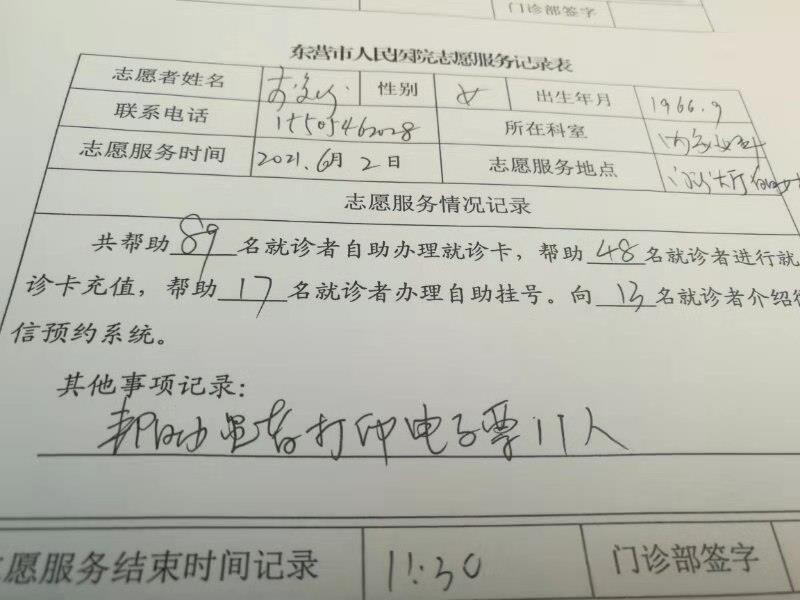 门诊部签字
东营市人民医院志愿服务记录表
志愿者姓名 性别 女 出生年月 1966.9
联系电话 15505462028 所在科室
志愿服务时间 2021.6月2日 志愿服务地点 门诊大厅
志愿服务情况记录
共帮助89名就诊者自助办理就诊卡，帮助48名就诊者进行就
诊卡充值，帮助17名就诊者办理自助挂号。向13名就诊者介绍微
信预约系统。
其他事项记录：
帮助患者打印电子票11人
志愿服务结束时间记录 11:30 门诊部签字